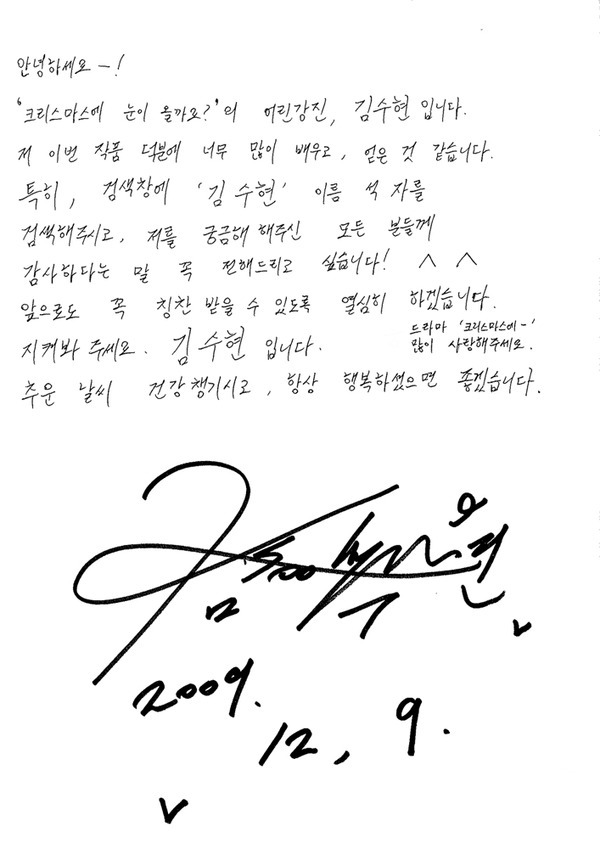 안녕하세요-!
'크리스마스에 눈이 올까요?'의 어린강진, 김수현입니다.
저 이번 작품 덕분에 너무 많이 배우고, 얻은 것 같습니다.
특히, 검색창에 '김수현' 이름 석 자를
검색해주시고, 저를 궁금해 해주신 모든 분들께
감사하다는 말 꼭 전해드리고 싶습니다! ^ ^
앞으로도 꼭 칭찬 받을 수 있도록 열심히 하겠습니다.
지켜봐 주세요. 김수현 입니다.
드라마 '크리스마스에-'
많이 사랑해주세요.
추운 날씨 건강챙기시고, 항상 행복하셨으면 좋겠습니다.
2009.
12, 9.